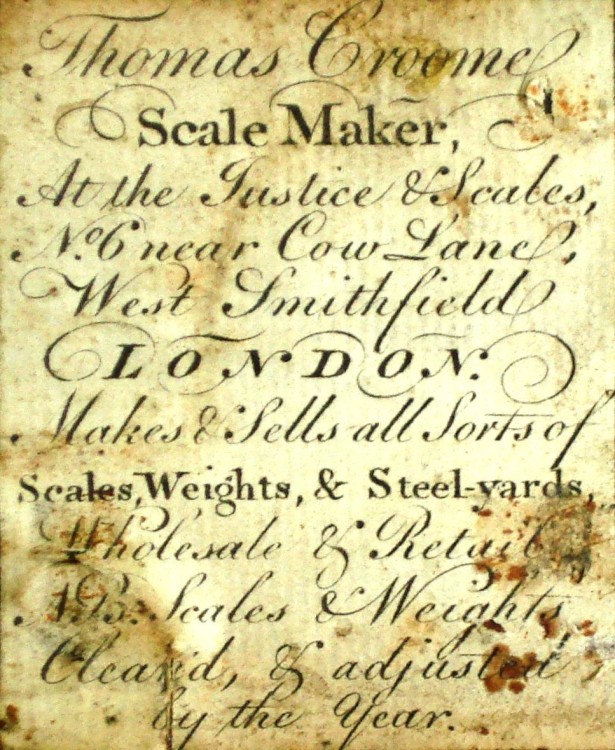 Thomas Croome
Scale Maker,
At the Justice & Scales,
No. 6 near Cow Lane,
West Smithfield
LONDON.
Makes & Sells all Sorts of
Scales, Weights, & Steel-yards,
Wholesale & Retail
N.B. Scales & Weights
Clean'd, & adjusted
by the Year.